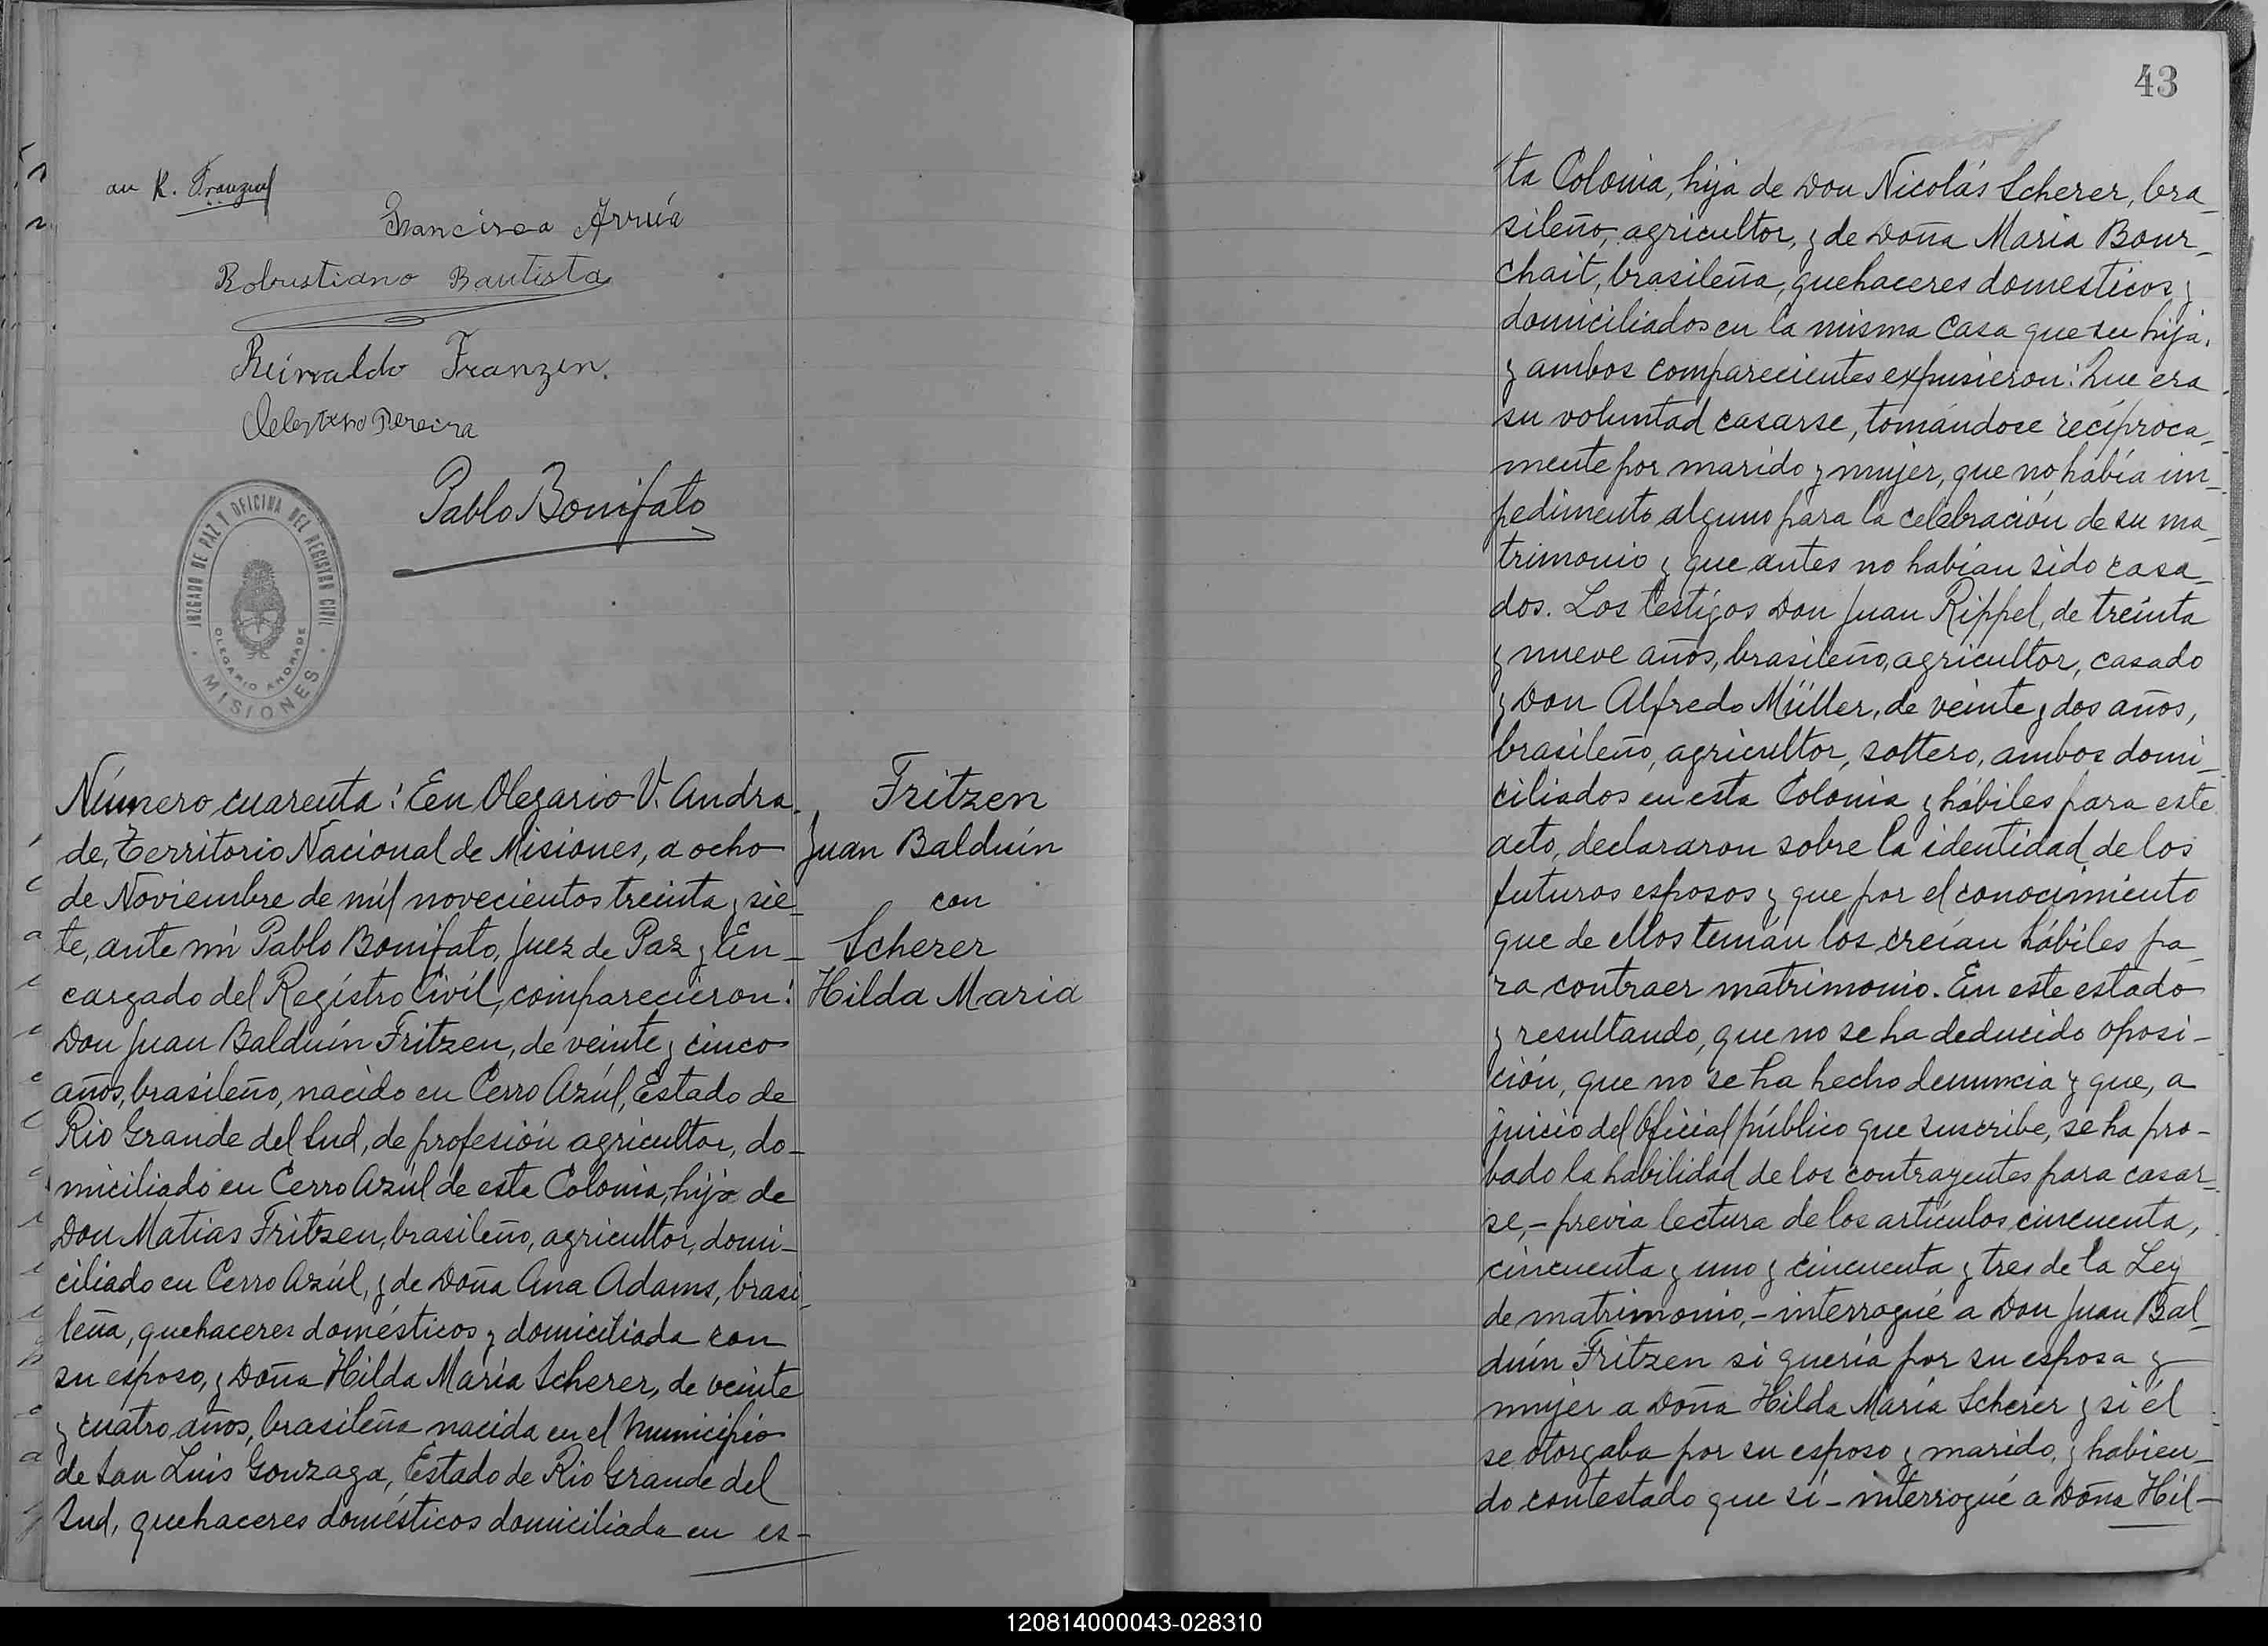 au R. Franzen
Francisca Arrúa
Robustiano Bautista
Reinaldo Franzen.
Pereira
Pablo Bonifato
JUZGADO DE PAZ Y OFICINA DEL REGISTRO CIVIL
OLEGARIO ANDRADE
MISIONES
Número cuarenta: En Olegario V. Andra-
de, Territorio Nacional de Misiones, a ocho
de Noviembre de mil novecientos treinta y sie-
te, ante mi Pablo Bonifato, Juez de Paz y En-
cargado del Registro Civil, comparecieron:
Don Juan Balduín Fritzen, de veinte y cinco
años, brasileño, nacido en Cerro Azúl, Estado de
Rio Grande del Sud, de profesión agricultor, do-
miciliado en Cerro Azúl de esta Colonia, hijo de
Don Matias Fritzen, brasileño, agricultor, domi-
ciliado en Cerro Azúl, y de Doña Ana Adams, brasi-
leña, quehaceres domésticos y domiciliada con
su esposo, y Doña Hilda María Scherer, de veinte
y cuatro años, brasileña nacida en el Municipio
de San Luis Gonzaga, Estado de Rio Grande del
Sud, quehaceres domésticos domiciliada en es-
Fritzen
Juan Balduín
con
Scherer
Hilda Maria
43
ta Colonia, hija de Don Nicolás Scherer, bra-
sileño, agricultor, y de Doña Maria Bour-
chait, brasileña, quehaceres domesticos y
domiciliados en la misma casa que su hija.
y ambos comparecientes expusieron: Que era
su voluntad casarse, tomándose recíproca-
mente por marido y mujer, que no había im-
pedimento alguno para la celebración de su ma-
trimonio y que antes no habían sido casa-
dos. Los testigos Don Juan Rippel, de treinta
y nueve años, brasileño, agricultor, casado
y Don Alfredo Müller, de veinte y dos años,
brasileño, agricultor, soltero, ambos domi-
ciliados en esta Colonia y hábiles para este
acto, declararon sobre la identidad de los
futuros esposos y que por el conocimiento
que de ellos tenían los creían hábiles pa-
ra contraer matrimonio. En este estado
y resultando, que no se ha deducido oposi-
ción, que no se ha hecho denuncia y que, a
juicio del Oficial público que suscribe, se ha pro-
bado la habilidad de los contrayentes para casar-
se, - previa lectura de los artículos cincuenta,
cincuenta y uno y cincuenta y tres de la Ley
de matrimonio, - interrogué a Don Juan Bal-
duín Fritzen si quería por su esposa y
mujer a Doña Hilda María Scherer y si él
se otorgaba por su esposo y marido, y habien-
do contestado que sí - interrogué a Doña Hil-
120814000043-028310